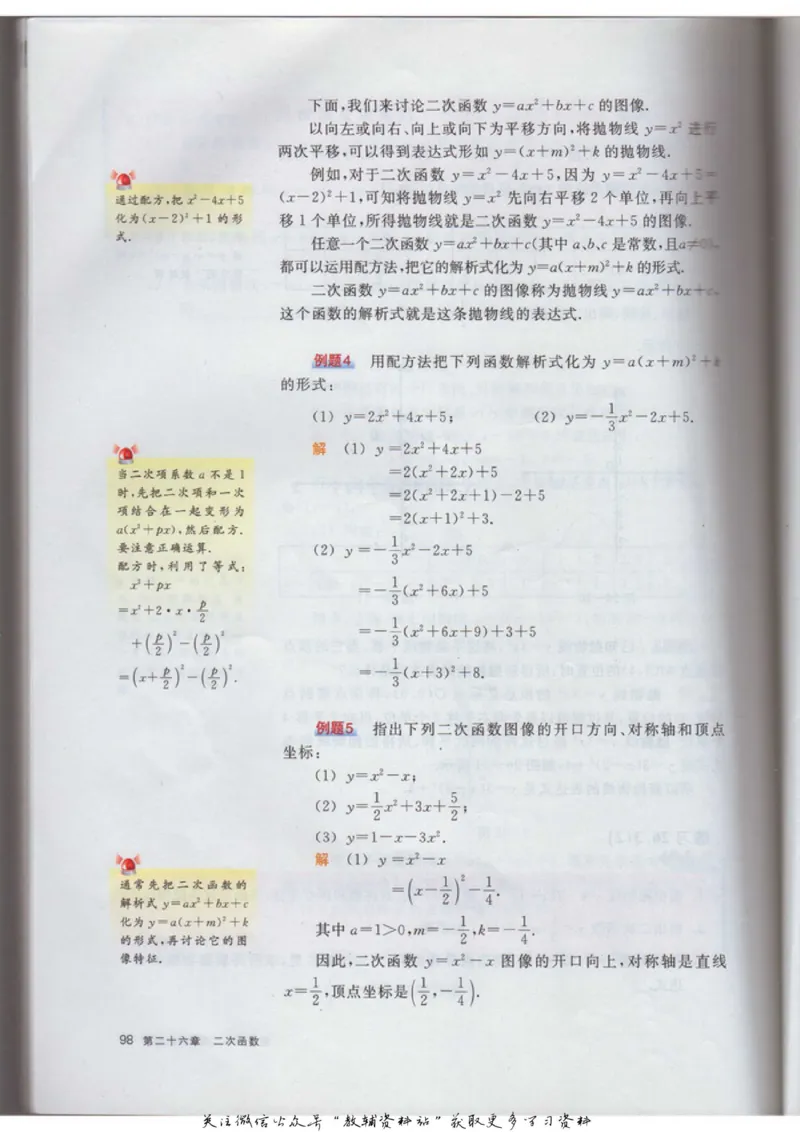 下面,我们来讨论二次函数 y=ax²+bx+c 的图像.
以向左或向右、向上或向下为平移方向,将抛物线 y=x² 进行
两次平移,可以得到表达式形如 y=(x+m)²+k 的抛物线.
例如,对于二次函数 y=x²-4x+5,因为 y=x²-4x+5=
(x-2)²+1,可知将抛物线 y=x² 先向右平移 2 个单位,再向上平
移 1 个单位,所得抛物线就是二次函数 y=x²-4x+5 的图像.
任意一个二次函数 y=ax²+bx+c(其中 a、b、c 是常数,且a≠0),
都可以运用配方法,把它的解析式化为 y=a(x+m)²+k 的形式.
二次函数 y=ax²+bx+c 的图像称为抛物线 y=ax²+bx+c,
这个函数的解析式就是这条抛物线的表达式.
通过配方,把 x²-4x+5
化为 (x-2)²+1 的形
式.
例题4 用配方法把下列函数解析式化为 y=a(x+m)²+k
的形式:
(1) y=2x²+4x+5; (2) y=-1/3x²-2x+5.
解 (1) y=2x²+4x+5
=2(x²+2x)+5
=2(x²+2x+1)-2+5
=2(x+1)²+3.
(2) y=-1/3x²-2x+5
=-1/3(x²+6x)+5
=-1/3(x²+6x+9)+3+5
=-1/3(x+3)²+8.
当二次项系数 a 不是 1
时,先把二次项和一次
项结合在一起变形为
a(x²+px),然后配方.
要注意正确运算.
配方时,利用了等式:
x²+px
=x²+2·x·p/2
+(p/2)²-(p/2)²
=(x+p/2)²-(p/2)².
例题5 指出下列二次函数图像的开口方向、对称轴和顶点
坐标:
(1) y=x²-x;
(2) y=1/2x²+3x+5/2;
(3) y=1-x-3x².
解 (1) y=x²-x
=(x-1/2)²-1/4.
其中 a=1>0,m=-1/2,k=-1/4.
因此,二次函数 y=x²-x 图像的开口向上,对称轴是直线
x=1/2,顶点坐标是(1/2,-1/4).
通常先把二次函数的
解析式 y=ax²+bx+c
化为 y=a(x+m)²+k
的形式,再讨论它的图
像特征.
98 第二十六章 二次函数
关注微信公众号“教辅资料站”获取更多学习资料